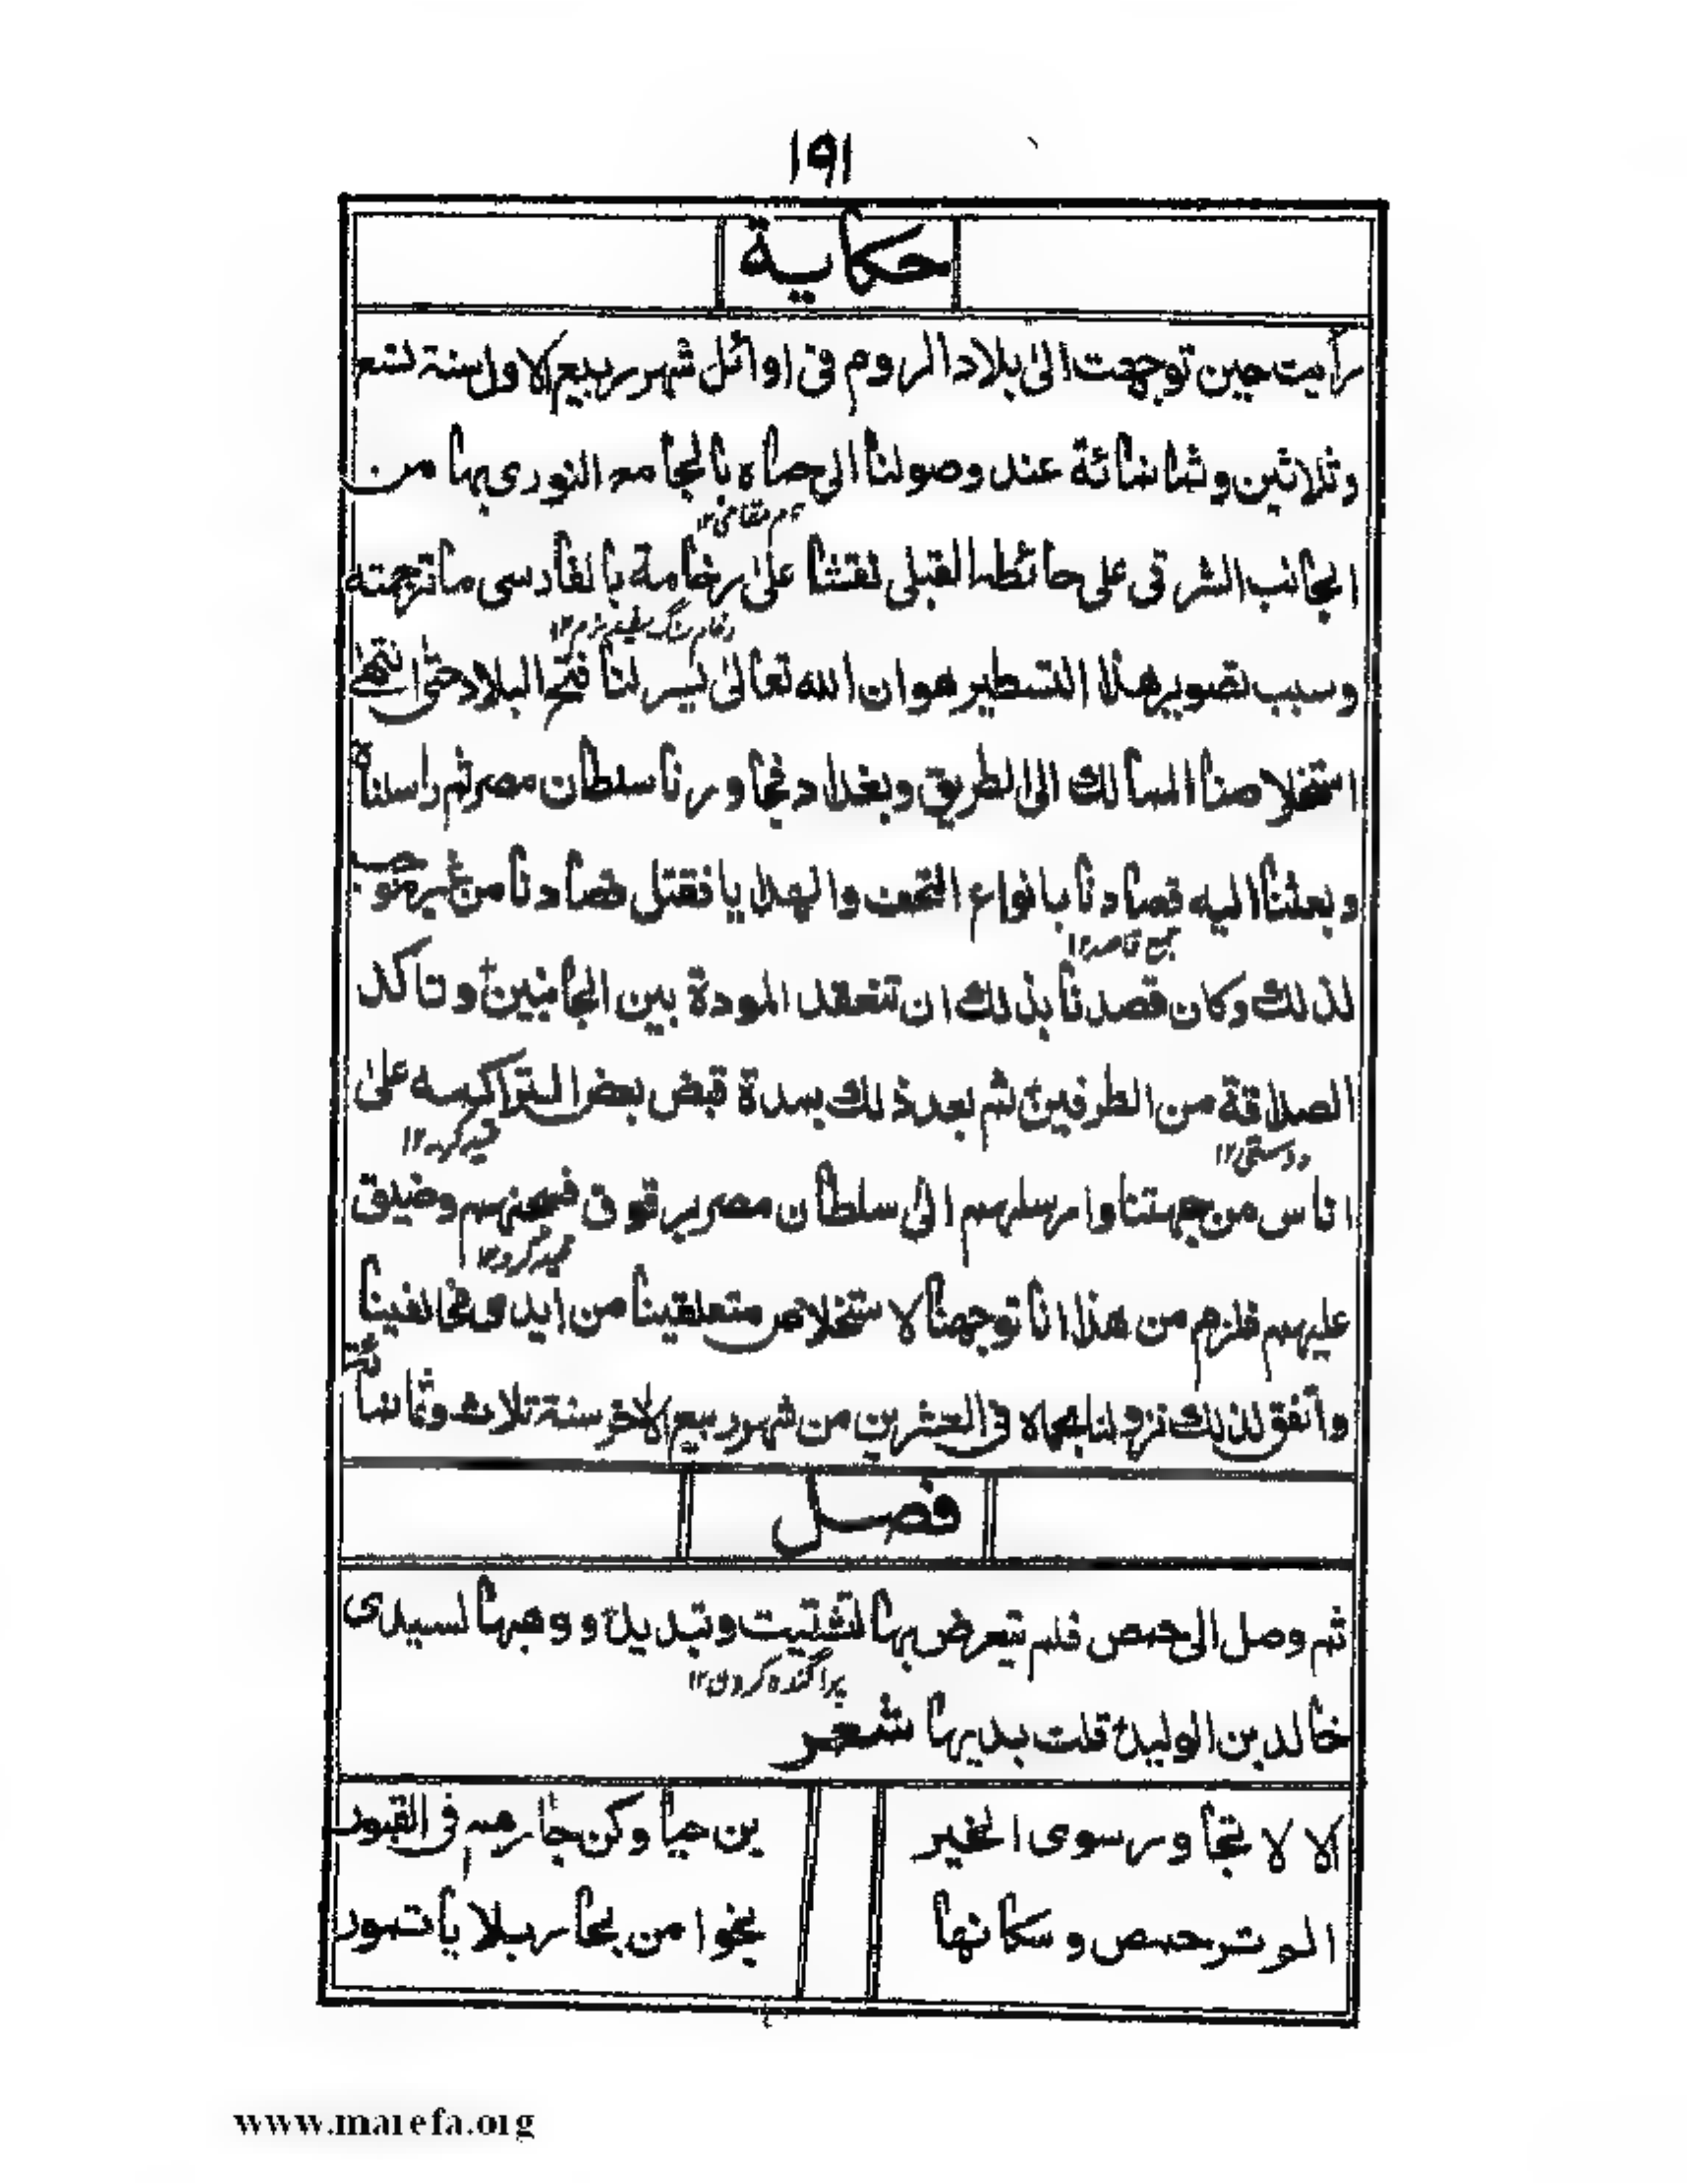 ١٩١
حكاية
رأيت حين توجهت الى بلاد الروم فى اوائل شهر ربيع الاول سنة تسع
وثلاثين وثمانمائة عند وصولنا الى حماه بالجامع النورى بها من
الجانب الشرقى على حائطه القبلى نقشا على رخامة بالفارسى ما ترجمته
وسبب تصوير هذا التسطير هو ان الله تعالى يسر لنا فتح البلاد حتى انتهى
استخلاصنا الممالك الى الطريق وبغداد فجاورنا سلطان مصر ثم راسلناه
وبعثنا اليه قصادنا بانواع التحف والهدايا فقتل قصادنا من غير موجب
جمع قاصد ١٢
لذلك وكان قصدنا بذلك ان تنعقد المودة بين الجانبين وتاكد
الصداقة من الطرفين ثم بعد ذلك بمدة قبض بعض التراكمه على
دوستى ١٢
اناس من جهتنا وارسلهم الى سلطان مصر برقوق فسجنهم وضيق
عليهم فلزم من هذا انا توجهنا لاستخلاص متعلقينا من ايدى مخالفينا
واتفق لذلك نزولنا بحماه فى العشرين من شهر ربيع الاخر سنة ثلاث وثمانمائة
فصل
ثم وصل الى حمص فلم يتعرض بها لتشتيت وتبديد ووهبها لسيدى
پراگنده كردن ١٢
خالد بن الوليد قلت بديها شعر
الا لا تجاور سوى الخير ين حيا وكن جارهم فى القبور
الم تر حمص وسكانها نجوا من بحار بلا يا تمور
www.marefa.org